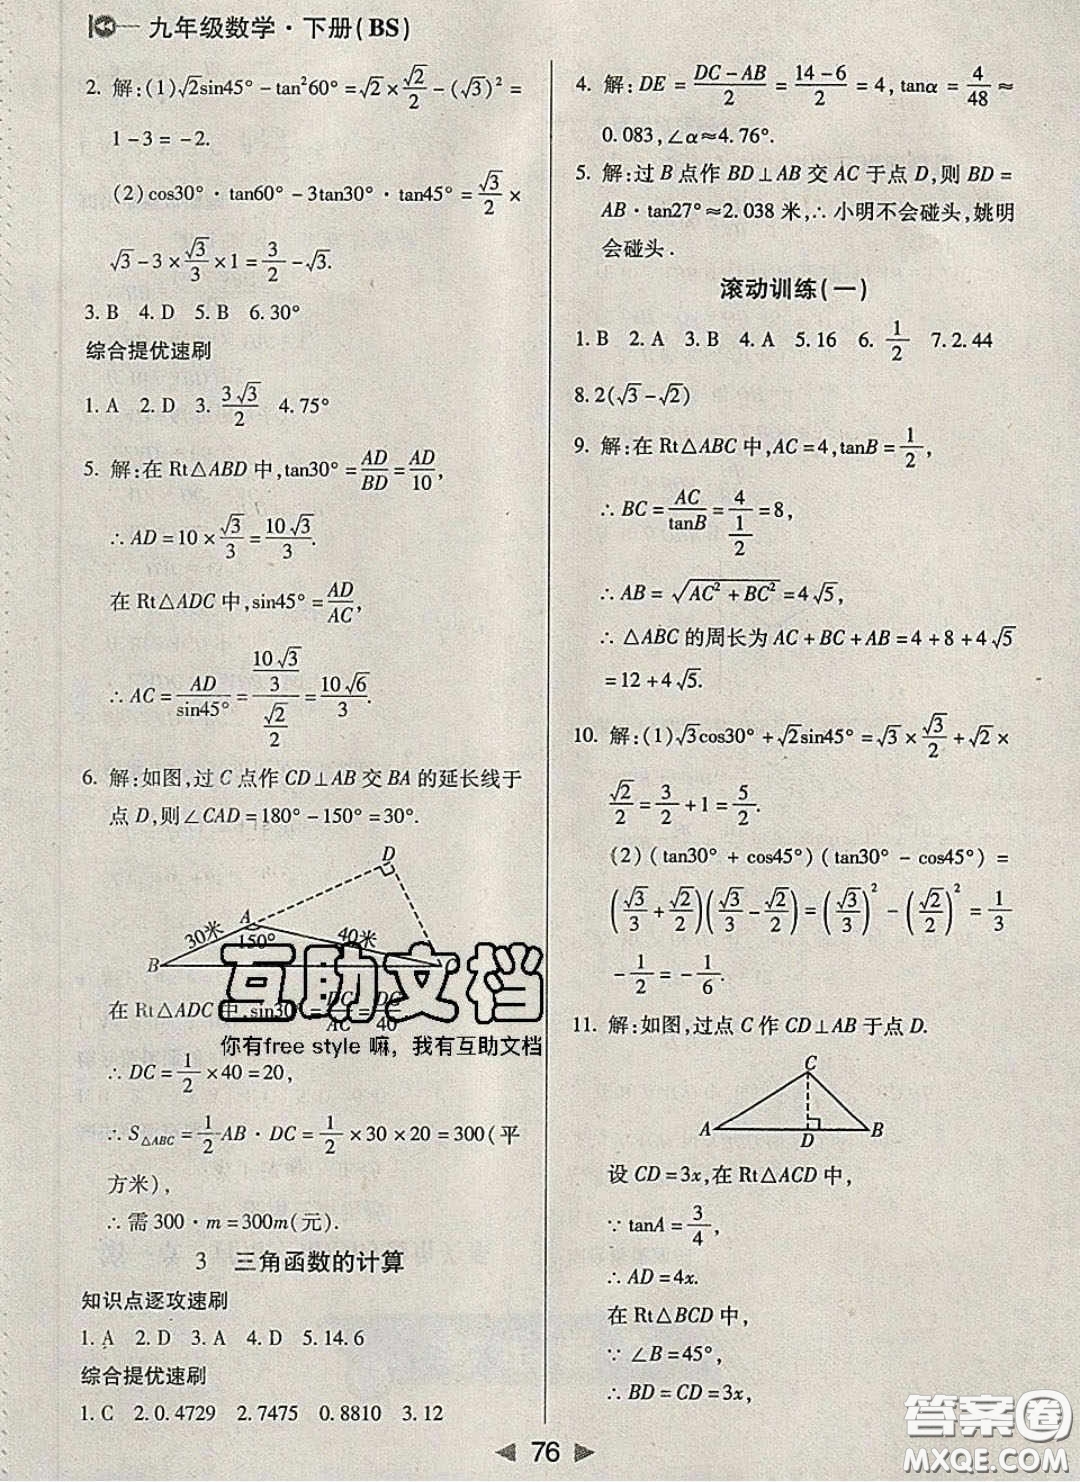 九年级数学·下册(BS)
2. 解:(1)√2sin45° - tan²60° = √2 × √2/2 - (√3)² =
1 - 3 = -2.
(2)cos30°·tan60° - 3tan30°·tan45° = √3/2 ×
√3 - 3 × √3/3 × 1 = 3/2 - √3.
3. B 4. D 5. B 6. 30°
综合提优速刷
1. A 2. D 3. 3√3/2 4. 75°
5. 解:在 Rt△ABD 中,tan30° = AD/BD = AD/10,
∴ AD = 10 × √3/3 = 10√3/3.
在 Rt△ADC 中,sin45° = AD/AC,
∴ AC = AD/sin45° = (10√3/3)/(√2/2) = 10√6/3.
6. 解:如图,过 C 点作 CD⊥AB 交 BA 的延长线于
点 D,则∠CAD = 180° - 150° = 30°.
D
A
30米 150° 40米
B C
在 Rt△ADC 中,sin30° = DC/AC = DC/40
∴ DC = 1/2 × 40 = 20,
∴ S△ABC = 1/2 AB·DC = 1/2 × 30 × 20 = 300(平
方米),
∴ 需 300·m = 300m(元).
3 三角函数的计算
知识点逐攻速刷
1. A 2. D 3. A 4. D 5. 14.6
综合提优速刷
1. C 2. 0.4729 2.7475 0.8810 3. 12
4. 解:DE = (DC - AB)/2 = (14 - 6)/2 = 4,tanα = 4/48 ≈
0.083,∠α≈4.76°.
5. 解:过 B 点作 BD⊥AB 交 AC 于点 D,则 BD =
AB·tan27°≈2.038 米,∴ 小明不会碰头,姚明
会碰头.
滚动训练(一)
1. B 2. A 3. B 4. A 5. 16 6. 1/2 7. 2.44
8. 2(√3 - √2)
9. 解:在 Rt△ABC 中,AC = 4,tanB = 1/2,
∴ BC = AC/tanB = 4/(1/2) = 8,
∴ AB = √(AC² + BC²) = 4√5,
∴ △ABC 的周长为 AC + BC + AB = 4 + 8 + 4√5
= 12 + 4√5.
10. 解:(1)√3cos30° + √2sin45° = √3 × √3/2 + √2 ×
√2/2 = 3/2 + 1 = 5/2.
(2)(tan30° + cos45°)(tan30° - cos45°) =
(√3/3 + √2/2)(√3/3 - √2/2) = (√3/3)² - (√2/2)² = 1/3
- 1/2 = -1/6.
11. 解:如图,过点 C 作 CD⊥AB 于点 D.
C
A D B
设 CD = 3x,在 Rt△ACD 中,
∵ tanA = 3/4,
∴ AD = 4x.
在 Rt△BCD 中,
∵ ∠B = 45°,
∴ BD = CD = 3x,
76
互助文档
你有free style 嘛，我有互助文档
答案圈
MXQE.COM